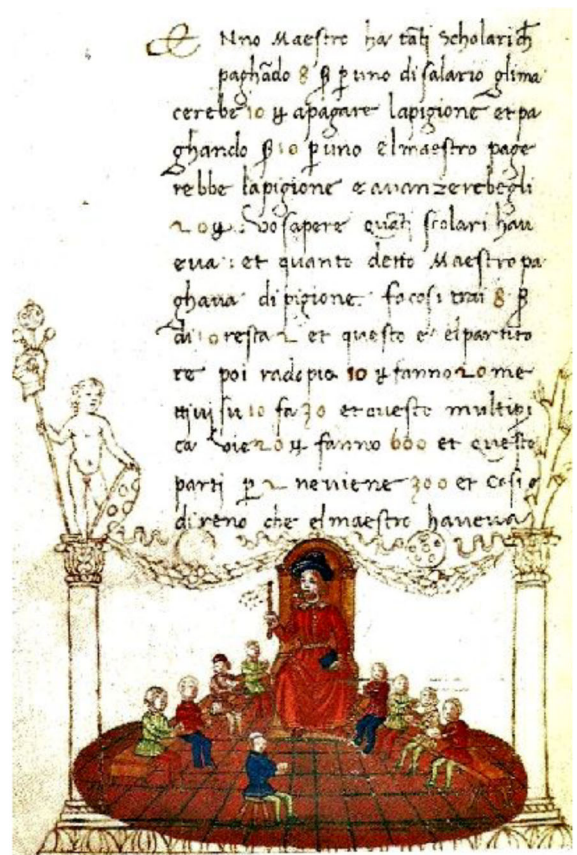 Nno Maestro ha tāti scholari ch̄
paghādo 8 β ꝑ uno di salario glima
cerebe 10 ɥ apagare lapigione et pa
ghando β 10 ꝑ uno elmaestro page
rebbe lapigione e avanzerebegli
20 ɥ. vo sapere quāti scolari hav
eva: et quanto detto Maestro pa
ghava di pigione. fa cosi trai 8 β
di 10 resta 2 et questo e elpartito
re poi radopia 10 ɥ fanno 20 me
su 10 fa 30 et questo multipli
ca vie 20 ɥ fanno 600 et questo
parti ꝑ 2 neviene 300 et cosi
direno che elmaestro haveva